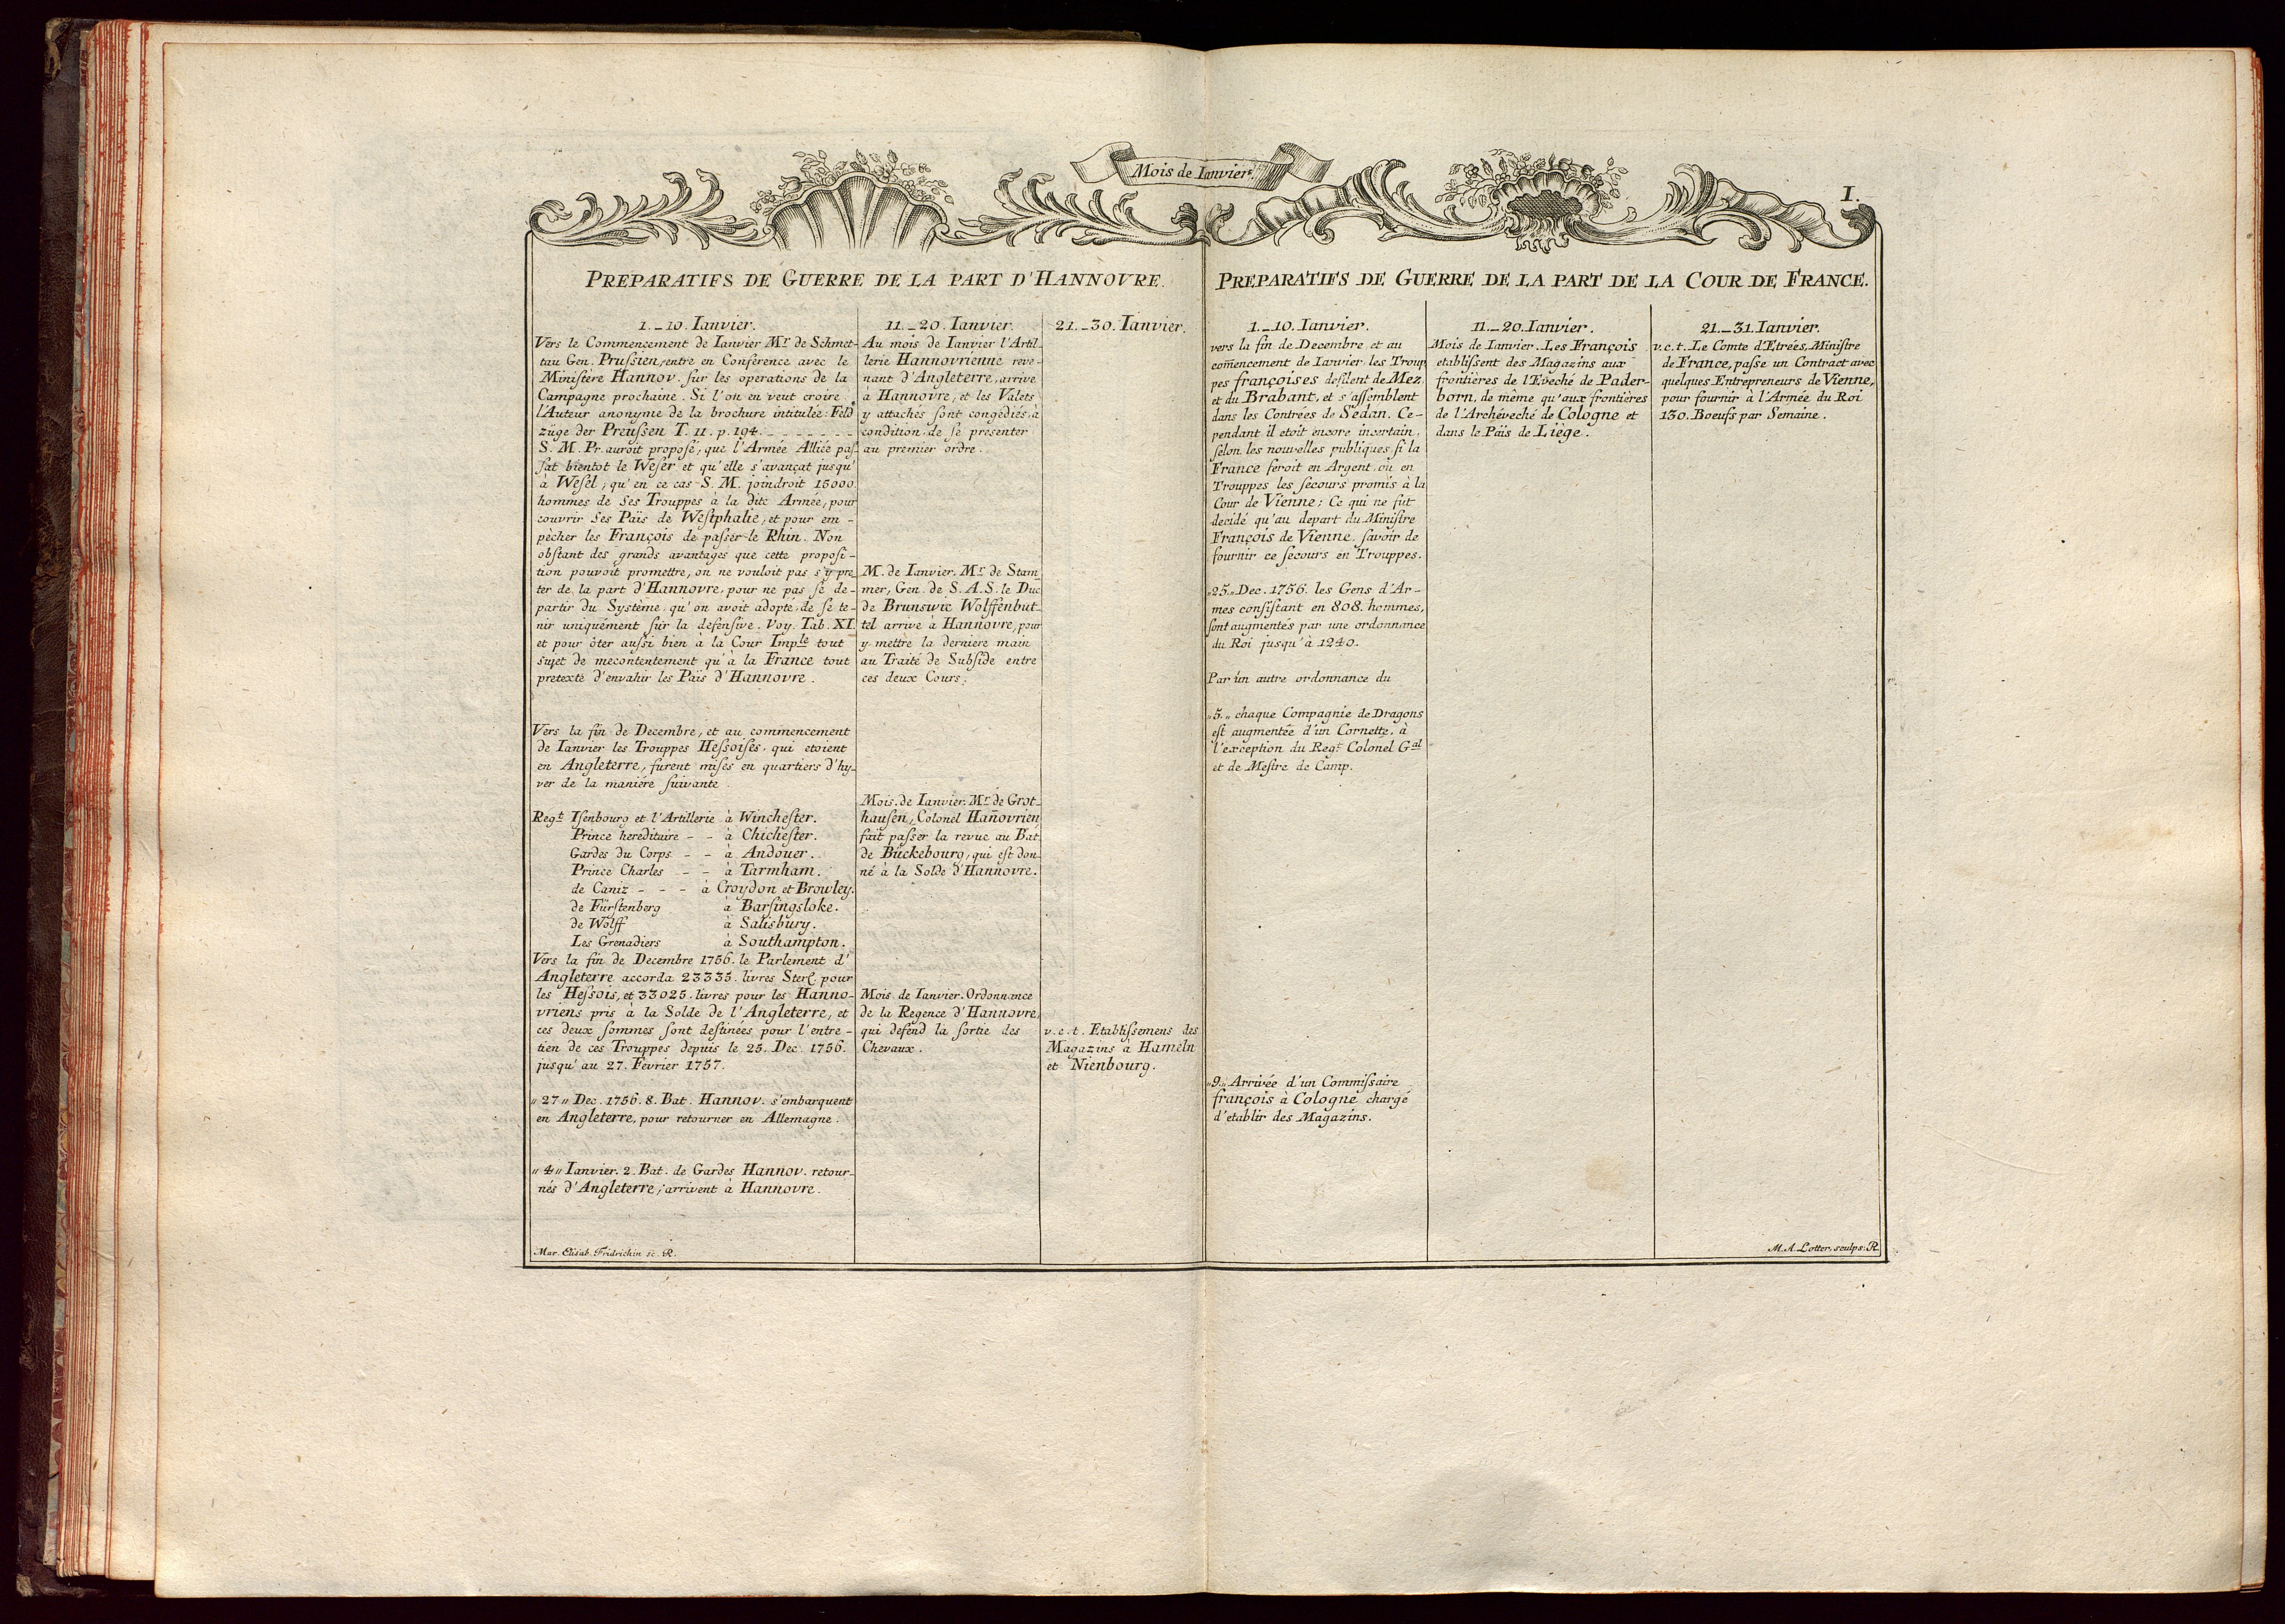 Mois de Ianvier.
I.
PREPARATIFS DE GUERRE DE LA PART D'HANNOVRE.
1._10. Ianvier.
Vers le Commencement de Ianvier Mr. de Schmet-
tau Gen. Prussien, entre en Conférence avec le
Ministère Hannov. sur les operations de la
Campagne prochaine. Si l'on en veut croire
l'Auteur anonyme de la brochure intitulée: Feld
züge der Preussen T. II. p. 194.
S. M. Pr. auroit proposé, que l'Armée Alliée pas-
sat bientot le Weser et qu'elle s'avançat jusqu'
à Wesel; qu'en ce cas S. M. joindroit 15000.
hommes de ses Trouppes à la dite Armée, pour
couvrir ses Païs de Westphalie, et pour em-
pècher les François de passer le Rhin. Non
obstant des grands avantages que cette proposi-
tion pouvoit promettre, on ne vouloit pas s'y pre-
ter de la part d'Hannovre, pour ne pas se de-
partir du Système qu'on avoit adopté, de se te-
nir uniquément sur la defensive. Voy. Tab. XI.
et pour ôter aussi bien à la Cour Imple tout
sujet de mecontentement qu'à la France tout
pretexte d'envahir les Païs d'Hannovre.
Vers la fin de Decembre, et au commencement
de Ianvier les Trouppes Hessoises, qui etoient
en Angleterre, furent mises en quartiers d'hy-
ver de la maniére suivante
Regt Isenbourg et l'Artillerie à Winchester.
Prince hereditaire - - à Chichester.
Gardes du Corps - - à Andouer.
Prince Charles - - à Tarmham.
de Caniz - - - à Croydon et Browley.
de Fürstenberg à Barsingsloke.
de Wolff à Salisbury.
Les Grenadiers à Southampton.
Vers la fin de Decembre 1756. le Parlement d'
Angleterre accorda 23335. livres Sterl. pour
les Hessois, et 33025. livres pour les Hanno-
vriens pris à la Solde de l'Angleterre, et
ces deux sommes sont destinées pour l'entre-
tien de ces Trouppes depuis le 25. Dec. 1756.
jusqu'au 27. Fevrier 1757.
"27" Dec. 1756. 8. Bat. Hannov. s'embarquent
en Angleterre, pour retourner en Allemagne.
"4" Ianvier. 2. Bat. de Gardes Hannov. retour-
nés d'Angleterre, arrivent à Hannovre.
Mar. Elisab. Fridrichin sc. R.
11._20. Ianvier.
Au mois de Ianvier l'Artil-
lerie Hannovrienne reve-
nant d'Angleterre, arrive
à Hannovre, et les Valets
y attachés sont congédiés, à
condition de se presenter
au premier ordre.
M. de Ianvier. Mr. de Stam-
mer, Gen. de S. A. S. le Duc
de Brunswic Wolffenbut-
tel arrive à Hannovre, pour
y mettre la derniere main
au Traité de Subside entre
ces deux Cours.
Mois de Ianvier. Mr. de Grot-
hausen, Colonel Hañovrien
fait passer la revue au Bat.
de Bückebourg, qui est don-
né à la Solde d'Hannovre.
Mois de Ianvier. Ordonnance
de la Regence d'Hannovre,
qui defend la sortie des
Chevaux.
21._30. Ianvier.
v. c. t. Etablissemens des
Magazins à Hameln
et Nienbourg.
PREPARATIFS DE GUERRE DE LA PART DE LA COUR DE FRANCE.
1._10. Ianvier.
vers la fin de Decembre et au
com̃encement de Ianvier les Troup
pes françoises defilent de Mez
et du Brabant, et s'assemblent
dans les Contrées de Sedan. Ce-
pendant il etoit encore incertain,
selon les nouvelles publiques, si la
France feroit en Argent, ou en
Trouppes les secours promis à la
Cour de Vienne; Ce qui ne fut
decidé qu'au depart du Ministre
François de Vienne, savoir de
fournir ce secours en Trouppes.
"25" Dec. 1756. les Gens d'Ar-
mes consistant en 808. hommes,
sont augmentés par une ordonnance
du Roi jusqu'à 1240.
Par un autre ordonnance du
"5" chaque Compagnie de Dragons
est augmentée d'un Cornette, à
l'exception du Regt. Colonel Gal
et de Mestre de Camp.
"9" Arrivée d'un Commissaire
françois à Cologne chargé
d'etablir des Magazins.
11._20. Ianvier.
Mois de Ianvier. Les François
etablissent des Magazins aux
frontières de l'Eveché de Pader-
born, de même qu'aux frontières
de l'Archéveché de Cologne et
dans le Païs de Liège.
21._31. Ianvier.
v. c. t. Le Comte d'Etrées, Ministre
de France, passe un Contract avec
quelques Entrepreneurs de Vienne,
pour fournir à l'Armée du Roi
130. Boeufs par Semaine.
M. A. Lotter, sculps: R.